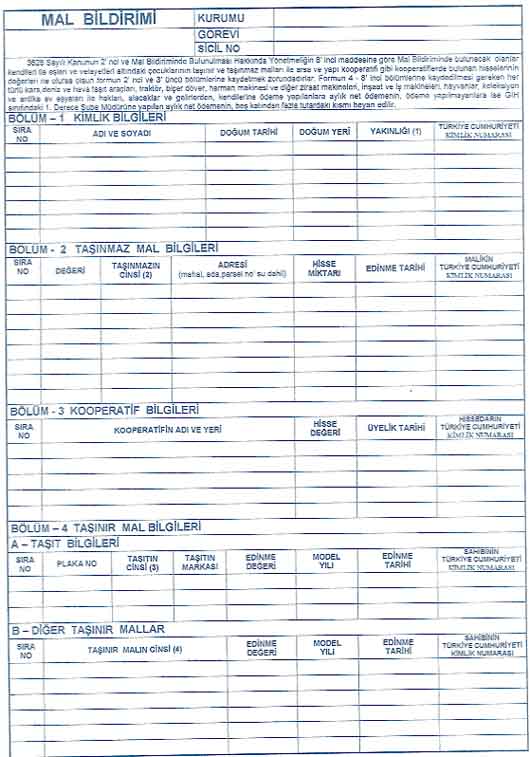 MAL BİLDİRİMİ
KURUMU
GÖREVİ
SİCİL NO
3628 Sayılı Kanunun 2' nci ve Mal Bildiriminde Bulunulması Hakkında Yönetmeliğin 8' inci maddesine göre Mal Bildiriminde bulunacak olanlar
kendileri ile eşleri ve velayetleri altındaki çocuklarının taşınır ve taşınmaz malları ile arsa ve yapı kooperatifi gibi kooperatiflerde bulunan hisselerinin
değerleri ne olursa olsun formun 2' nci ve 3' üncü bölümlerine kaydetmek zorundadırlar. Formun 4 - 8' inci bölümlerine kaydedilmesi gereken her
türlü kara, deniz ve hava taşıt araçları, traktör, biçer döver, harman makinesi ve diğer ziraat makineleri, inşaat ve iş makineleri, hayvanlar, koleksiyon
ve antika ev eşyaları ile hakları, alacaklar ve gelirlerden, kendilerine ödeme yapılanlara aylık net ödemenin, ödeme yapılmayanlara ise GİH
sınıfındaki 1. Derece Şube Müdürüne yapılan aylık net ödemenin, beş katından fazla tutardaki kısmı beyan edilir.
BÖLÜM – 1 KİMLİK BİLGİLERİ
SIRA NO
ADI VE SOYADI
DOĞUM TARİHİ
DOĞUM YERİ
YAKINLIĞI (1)
TÜRKİYE CUMHURİYETİ
KİMLİK NUMARASI
BÖLÜM - 2 TAŞINMAZ MAL BİLGİLERİ
SIRA NO
DEĞERİ
TAŞINMAZIN
CİNSİ (2)
ADRESİ
(mahal, ada,parsel no' su dahil)
HİSSE
MİKTARI
EDİNME TARİHİ
MALİKİN
TÜRKİYE CUMHURİYETİ
KİMLİK NUMARASI
BÖLÜM - 3 KOOPERATİF BİLGİLERİ
SIRA
NO
KOOPERATİFİN ADI VE YERİ
HİSSE
DEĞERİ
ÜYELİK TARİHİ
HİSSEDARIN
TÜRKİYE CUMHURİYETİ
KİMLİK NUMARASI
BÖLÜM – 4 TAŞINIR MAL BİLGİLERİ
A – TAŞIT BİLGİLERİ
SIRA
NO
PLAKA NO
TAŞITIN
CİNSİ (3)
TAŞITIN
MARKASI
EDİNME
DEĞERİ
MODEL
YILI
EDİNME
TARİHİ
SAHİBİNİN
TÜRKİYE CUMHURİYETİ
KİMLİK NUMARASI
B – DİĞER TAŞINIR MALLAR
SIRA
NO
TAŞINIR MALIN CİNSİ (4)
EDİNME
DEĞERİ
MODEL
YILI
EDİNME
TARİHİ
SAHİBİNİN
TÜRKİYE CUMHURİYETİ
KİMLİK NUMARASI